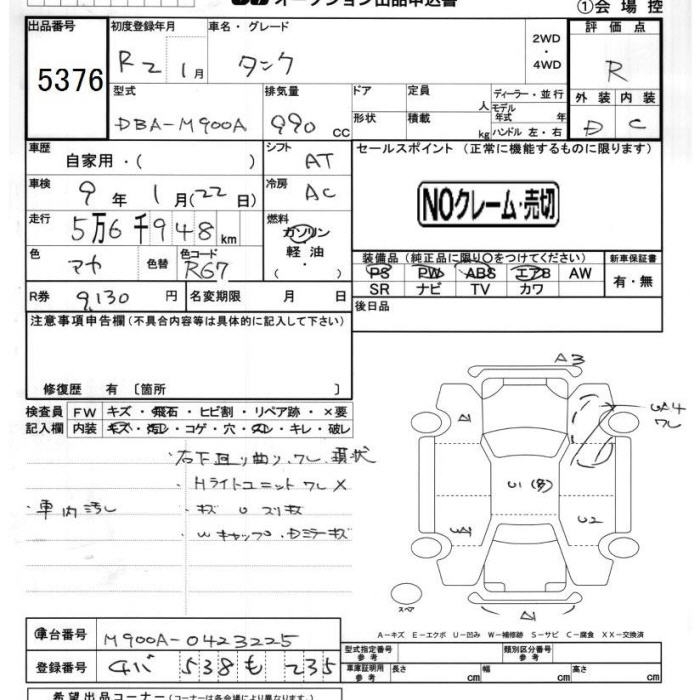 オークション出品申込書 ①会場控
出品番号 初度登録年月 車名・グレード 評価点
5376 R2 1月 タンク 2WD・4WD R
型式 排気量 ドア 定員 人 ディーラー・並行 外装 内装
DBA-M900A 990 cc 形状 積載 kg モデル年式 年 ハンドル 左・右 D C
車歴 自家用・( ) シフト AT セールスポイント (正常に機能するものに限ります)
車検 9年 1月 (22日) 冷房 AC NOクレーム・売切
走行 5万6千948km 燃料 ガソリン
色 マカ 色替 色コード R67 軽油・( )
装備品 (純正品に限り○をつけてください) 新車保証書
PS PW ABS エアB AW 有・無
SR ナビ TV カワ
R券 9,130円 名変期限 月 日 後日品
注意事項申告欄 (不具合内容等は具体的に記入して下さい)
修復歴 有 〔箇所 〕
検査員 FW キズ・飛石・ヒビ割・リペア跡・×要
記入欄 内装 キズ・汚レ・コゲ・穴・スレ・キレ・破レ
右下回り曲り、ワレ 現状
・Hライトユニット ワレ X
・車内汚れ ・キズ U スリキズ
・Wキャップ、Dミラーキズ
A3
A1 UA4 ワレ
U1(多)
U2
A1
スペア
A-キズ E-エクボ U-凹み W-補修跡 S-サビ C-腐食 XX-交換済
車台番号 M900A-0423225
登録番号 538 も 235
型式指定番号 参考 類別区分番号 参考
車庫証明用 参考 長さ cm 幅 cm 高さ cm
希望出品コーナー (コーナーは各会場により異なります)